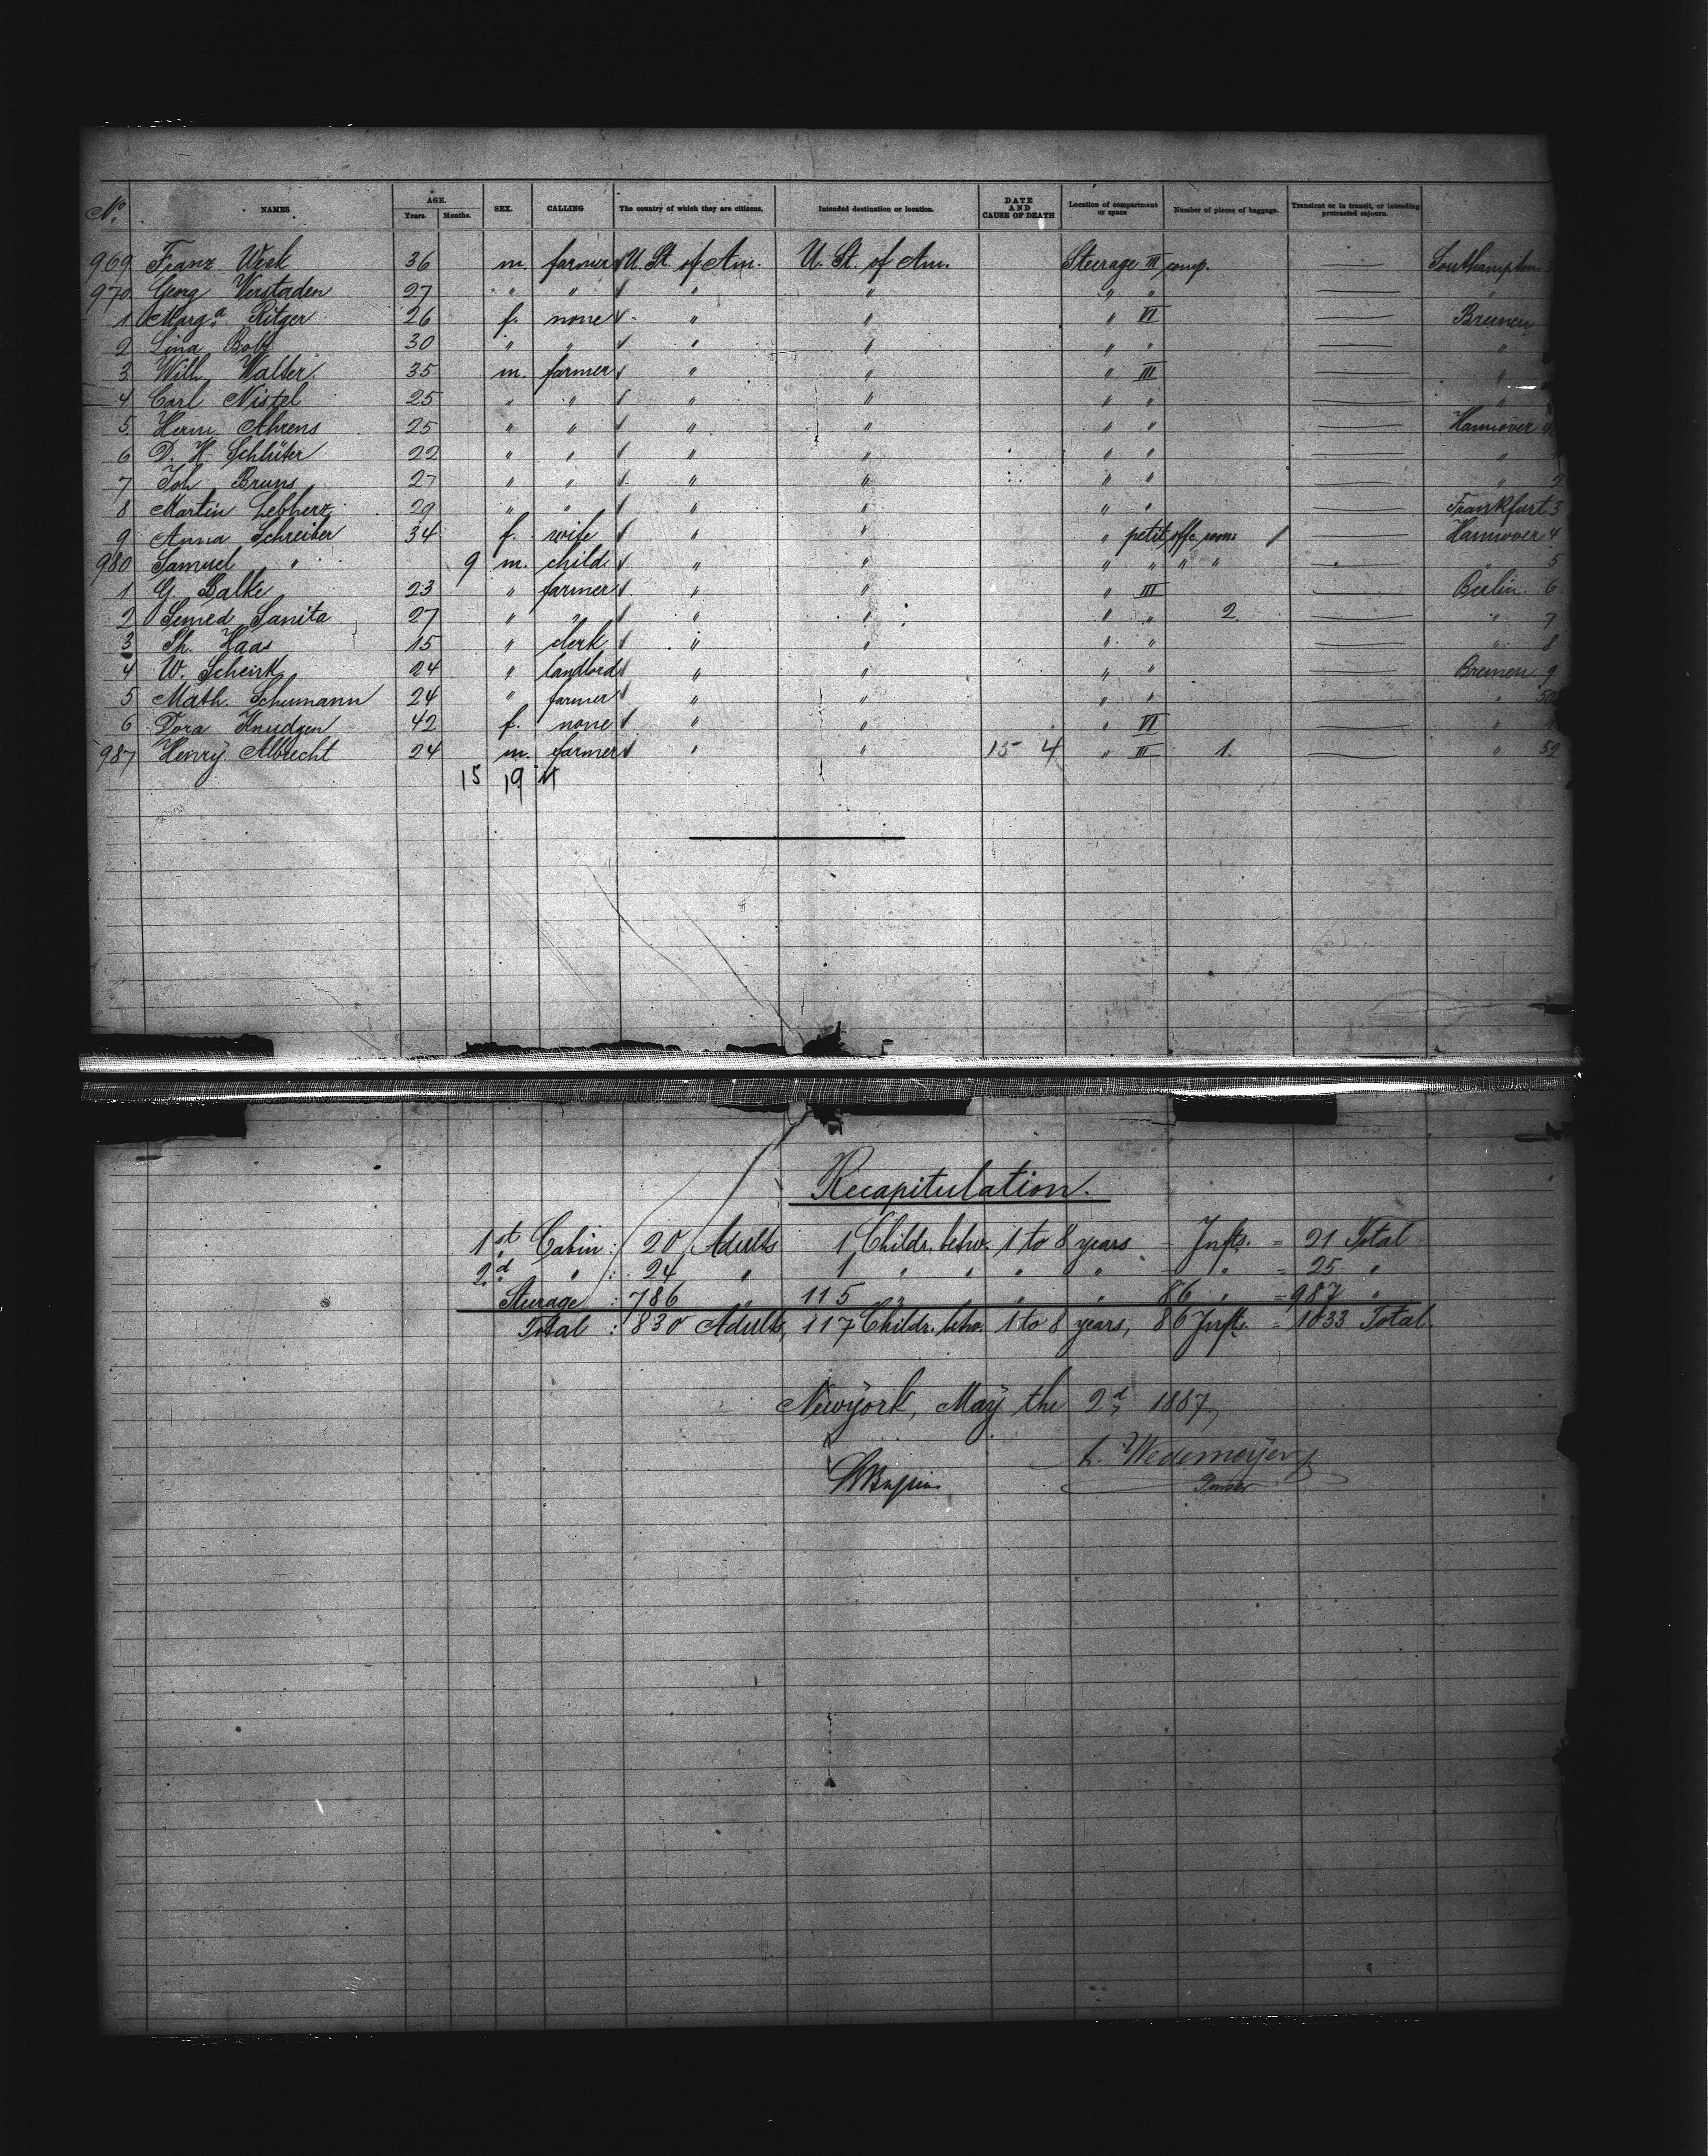 No. NAMES AGE. Years. Months. SEX. CALLING The country of which they are citizens. Intended destination or location. DATE AND CAUSE OF DEATH Location of compartment or space Number of pieces of baggage. Transient or in transit, or intending protracted sojourn.
969 Franz 36 m. farmer U. St. of Am. U. St. of Am. Steerage III comp. — Southampton
970 Georg Verstaden 27 " " " " " " —
1 Marga Ritger 26 f. none " " " VI — Bremen
2 Lina 30 " " " " " " — "
3 Wilh. Walter 35 m. farmer " " " III — "
4 Carl Nistel 25 " " " " " " — "
5 Herm. Ahrens 25 " " " " " " — Hannover
6 D. H. Schlüter 22 " " " " " " — "
7 Joh. Bruns 27 " " " " " " — " 2
8 Martin Lebherz 29 " " " " " " — Frankfurt 3
9 Anna Schreiber 34 f. wife " " " petit. offc. room / — Hannover 4
980 Samuel " 9 m. child " " " " " " — " 5
1 G. Balke 23 " farmer " " " III — Berlin. 6
2 Semed Sanita 27 " " " " " " 2 — " 7
3 Ph. Haas 15 " clerk " " " " — " 8
4 W. Schenk 24 " landlord " " " " — Bremen 9
5 Math. Schumann 24 " farmer " " " " — " 50
6 Dora Knudzen 42 f. none " " " VI — "
987 Henry Albrecht 24 m. farmer " " 15 4 " III 1. — " 52
15 19 4
Recapitulation.
1st Cabin: 20 Adults 1 Childr. betw. 1 to 8 years – Infts. = 21 Total
2d " : 24 " 1 " " " " – " = 25 "
Steerage : 786 " 115 " " " 86 " = 987 "
Total : 830 Adults, 117 Childr. betw. 1 to 8 years, 86 Infts. = 1033 Total.
Newyork, May the 2d 1887,
Wedemeyer